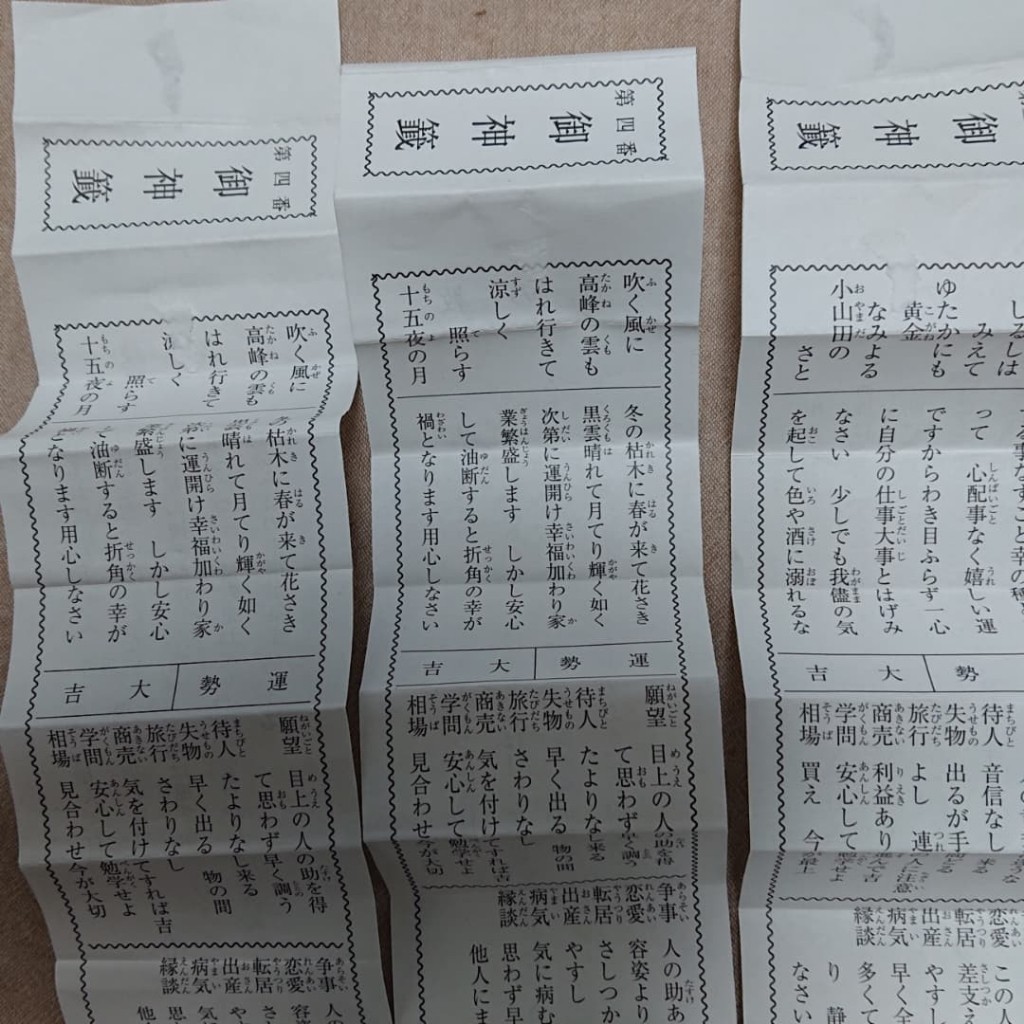 第四番
御神籤
吹く風に
高峰の雲も
はれ行きて
涼しく
照らす
十五夜の月
冬の枯木に春が来て花さき
黒雲晴れて月てり輝く如く
次第に運開け幸福加わり家
業繁盛します しかし安心
して油断すると折角の幸が
禍となります用心しなさい
運勢 大吉
願望 目上の人の助を得
て思わず早く調う
待人 たよりなし来る
失物 早く出る 物の間
旅行 さわりなし
商売 気を付けてすれば吉
学問 安心して勉学せよ
相場 見合わせ今が大切
争事 人の助あ
恋愛 容姿より
転居 さしつか
出産 やすし
病気 気に病む
思わず早
縁談 他人にま
第四番
御神籤
吹く風に
高峰の雲も
はれ行きて
しく
照らす
十五夜の月
枯木に春が来て花さき
晴れて月てり輝く如く
に運開け幸福加わり家
繁盛します しかし安心
油断すると折角の幸が
となります用心しなさい
運勢 大吉
願望 目上の人の助を得
て思わず早く調う
待人 たよりなし来る
失物 早く出る 物の間
旅行 さわりなし
商売 気を付けてすれば吉
学問 安心して勉学せよ
相場 見合わせ今が大切
争事 人の
恋愛 容
転居 さし
出産 やす
病気 気に
思わ
縁談 他人
御神籤
しるしは
みえて
ゆたかにも
黄金
なみよる
小山田の
さと
る事なすこと幸の種と
って 心配事なく嬉しい運
ですからわき目ふらず一心
に自分の仕事大事とはげみ
なさい 少しでも我儘の気
を起して色や酒に溺れるな
勢 大吉
待人 音信なし
失物 出るが手
旅行 よし 連
商売 利益あり
学問 安心して
相場 買え 今
恋愛 この人
転居 差支え
出産 やすし
病気 早く全
多くて
縁談 り 静
なさい